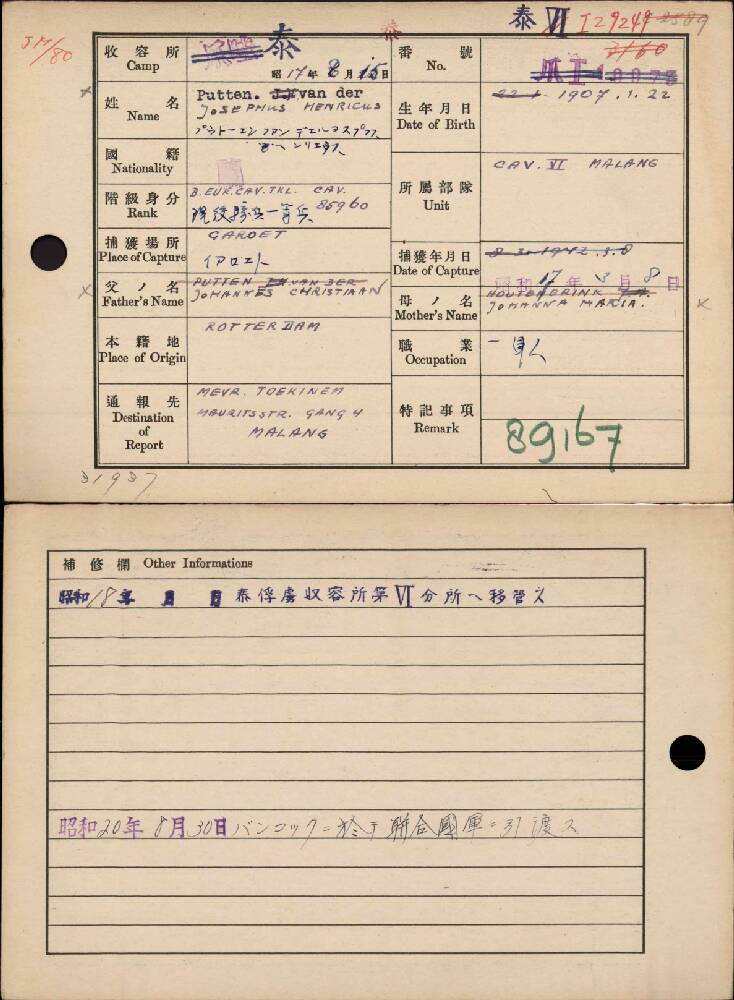 泰 VI I 29249 2589
JM/80
収容所 Camp 泰
昭17年8月15日
番號 No. 2160
姓名 Name Putten. J.H. van der
JOSEPHUS HENRICUS
生年月日 Date of Birth 22-1- 1907.1.22
國籍 Nationality
階級身分 Rank B.EUR.CAV.TKL. CAV.
85960
所属部隊 Unit CAV. VI MALANG
捕獲場所 Place of Capture GAROET
捕獲年月日 Date of Capture 8-3-1942.3.8
昭和17年3月8日
父ノ名 Father's Name PUTTEN VAN DER
JOHANNES CHRISTIAAN
母ノ名 Mother's Name
JOHANNA MARIA.
本籍地 Place of Origin ROTTERDAM
職業 Occupation 軍人
通報先 Destination of Report MEVR. TOEKINEM
MAURITSSTR. GANG 4
MALANG
特記事項 Remark 89167
31937
補修欄 Other Informations
昭和18年 月 日 泰俘虜収容所第VI分所ヘ移管ス
昭和20年8月30日バンコックニ於テ聯合國軍ニ引渡ス